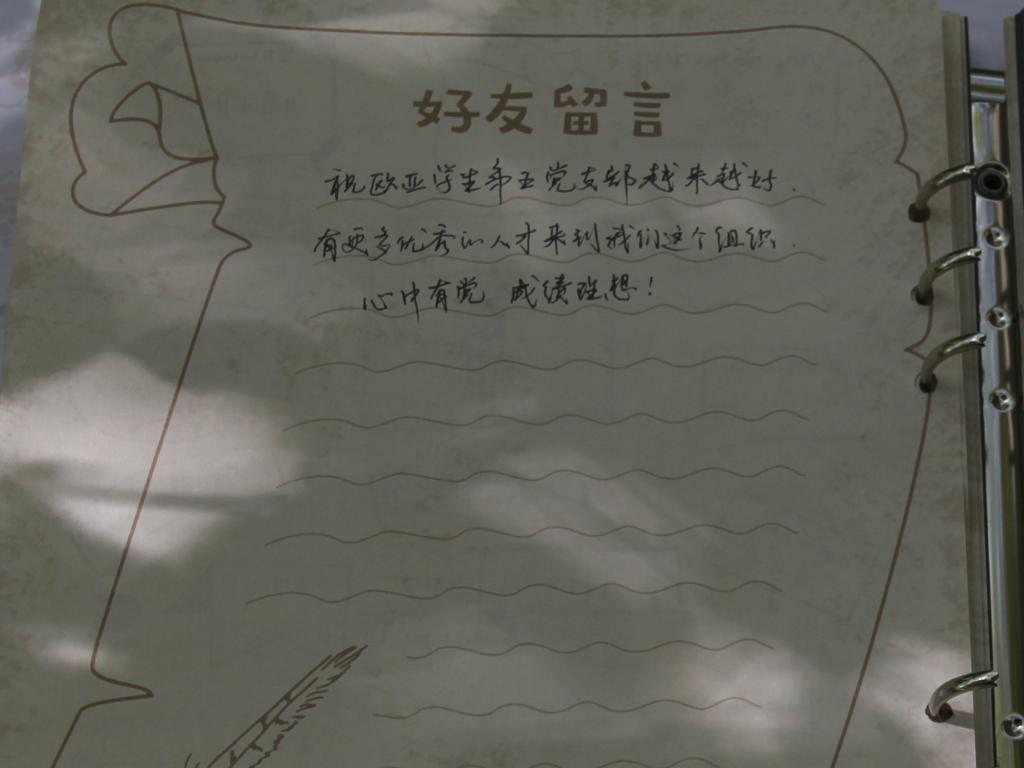 好友留言
祝欧亚学生第五党支部越来越好.
有更多优秀的人才来到我们这个组织.
心中有党 成绩理想!